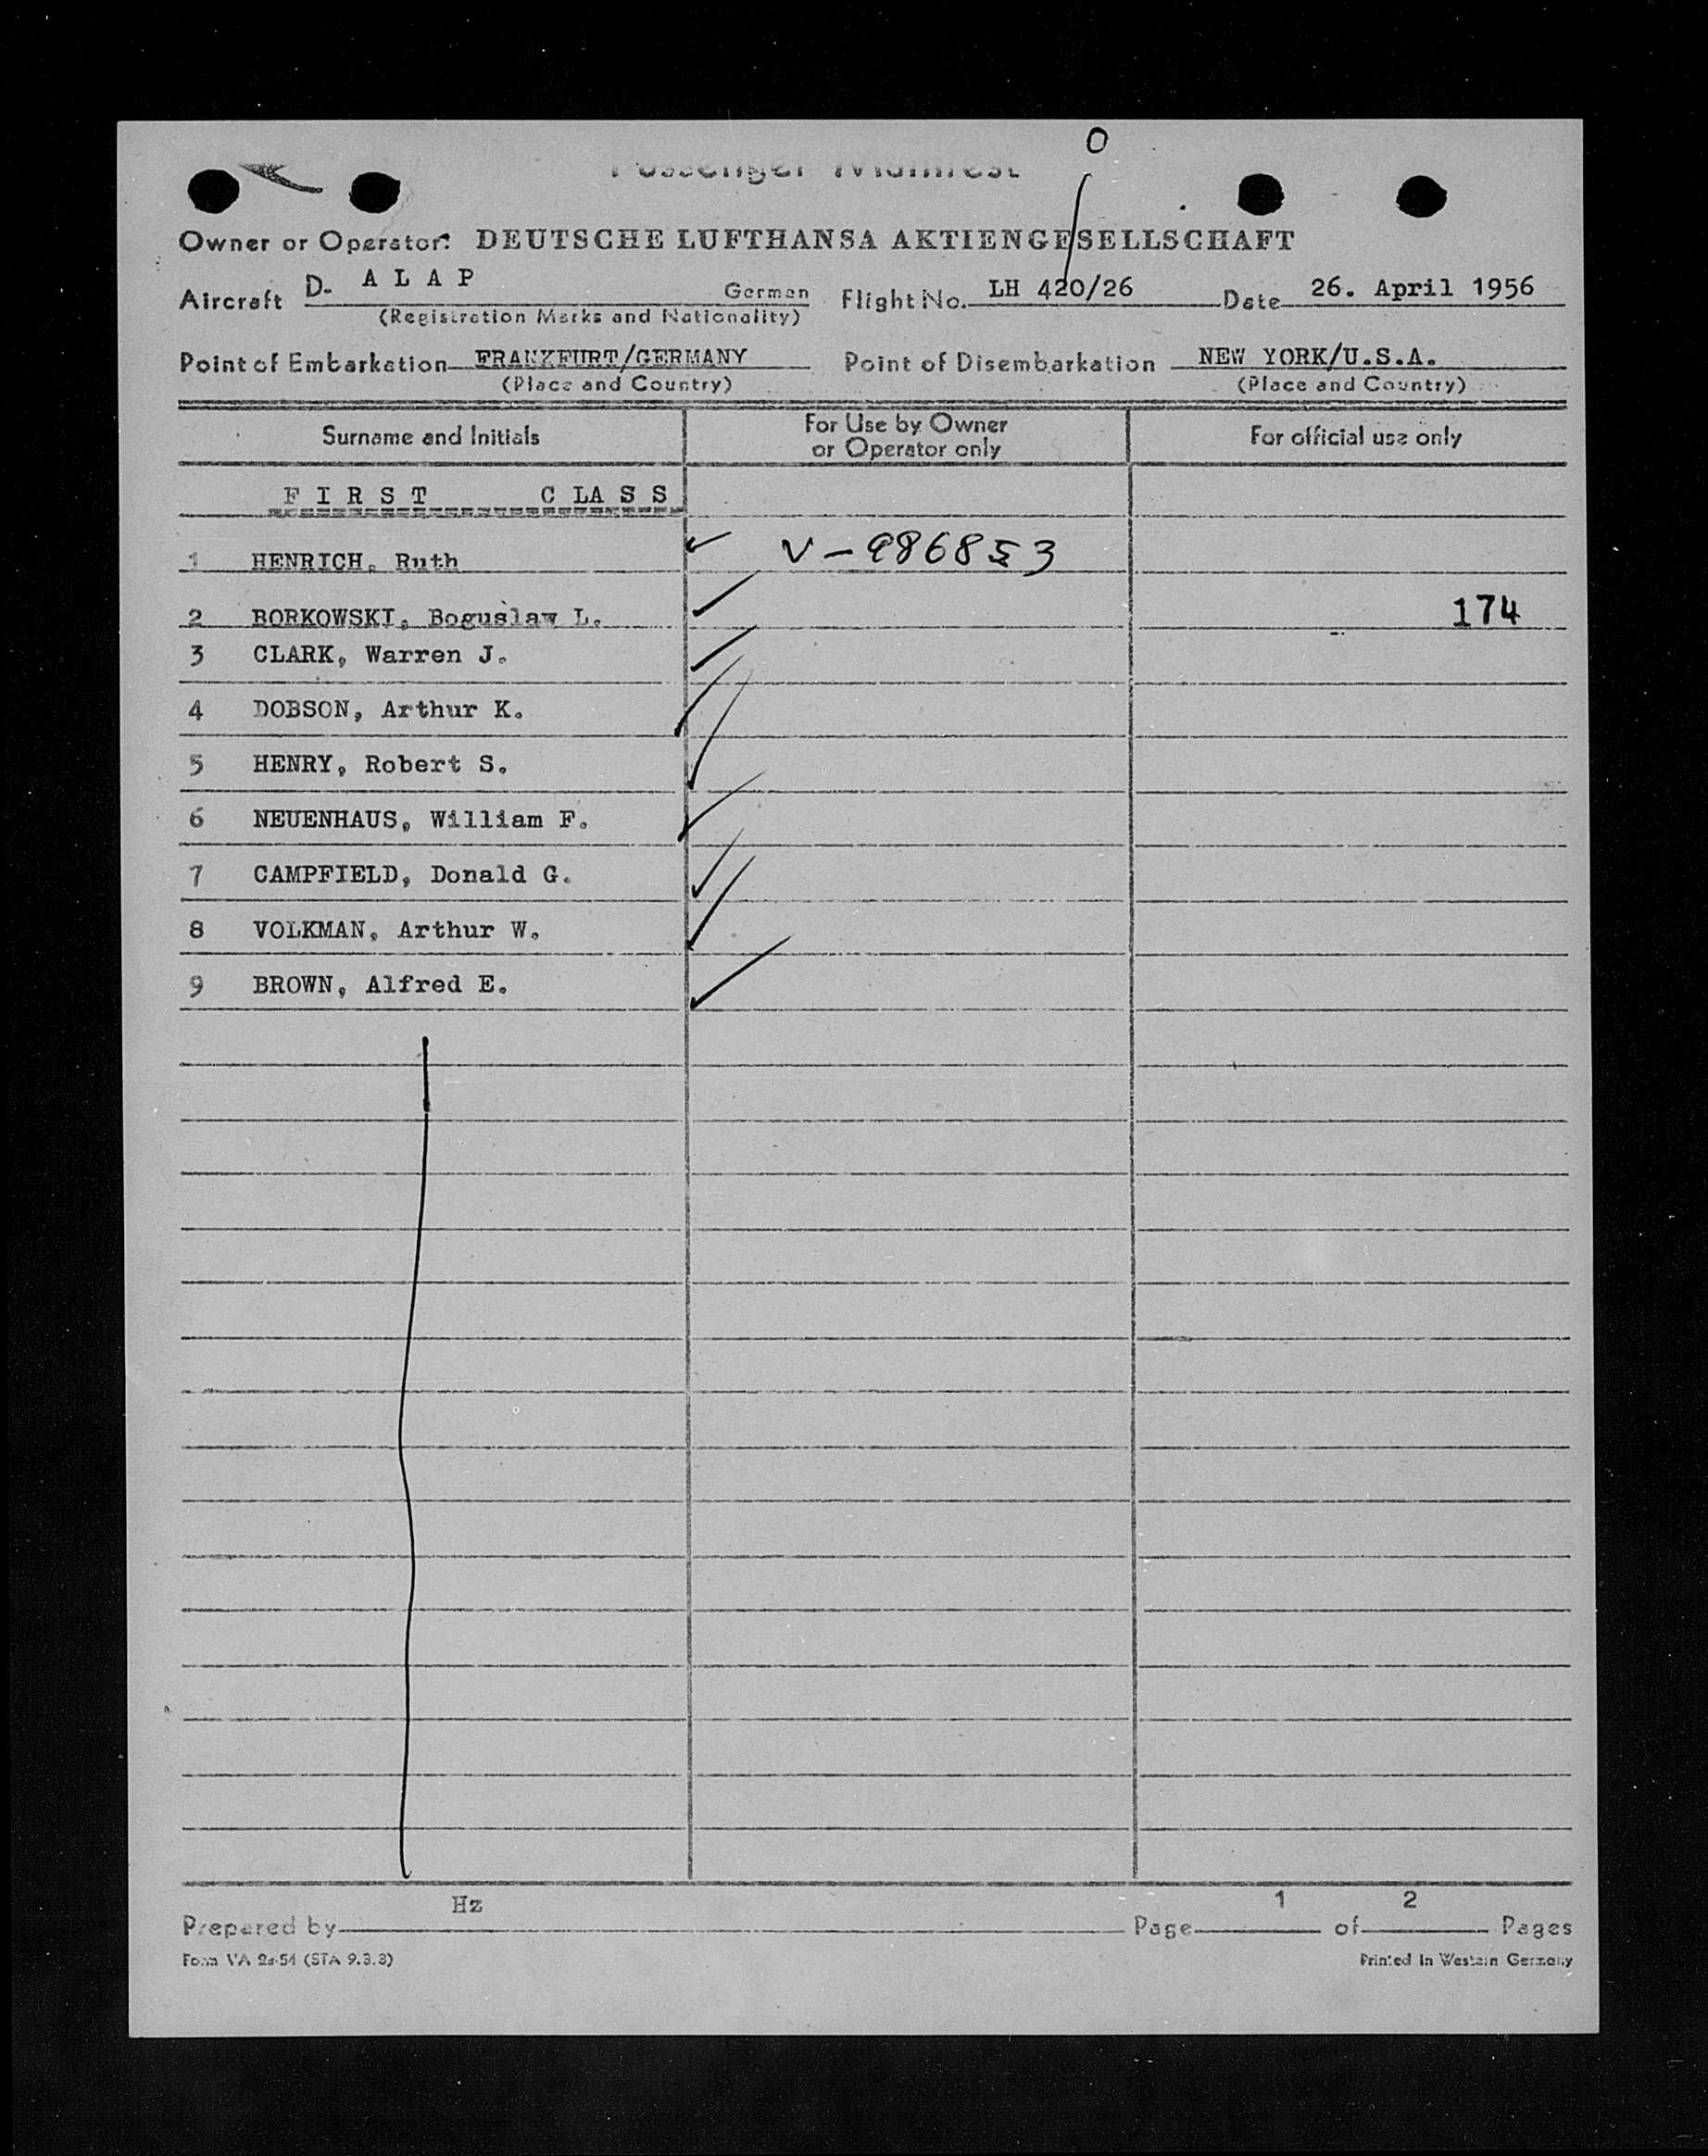 O
Passenger Manifest
Owner or Operator: DEUTSCHE LUFTHANSA AKTIENGESELLSCHAFT
Aircraft D- A L A P German Flight No. LH 420/26 Date 26. April 1956
(Registration Marks and Nationality)
Point of Embarkation FRANKFURT/GERMANY Point of Disembarkation NEW YORK/U.S.A.
(Place and Country) (Place and Country)
Surname and Initials For Use by Owner or Operator only For official use only
F I R S T C LA S S
1 HENRICH, Ruth ✓ V-986853
2 BORKOWSKI, Boguslaw L. ✓ 174
3 CLARK, Warren J. ✓
4 DOBSON, Arthur K. ✓
5 HENRY, Robert S. ✓
6 NEUENHAUS, William F. ✓
7 CAMPFIELD, Donald G. ✓
8 VOLKMAN, Arthur W. ✓
9 BROWN, Alfred E. ✓
Prepared by Hz Page 1 of 2 Pages
Form VA 2a-54 (STA 9.3.3) Printed in Western Germany